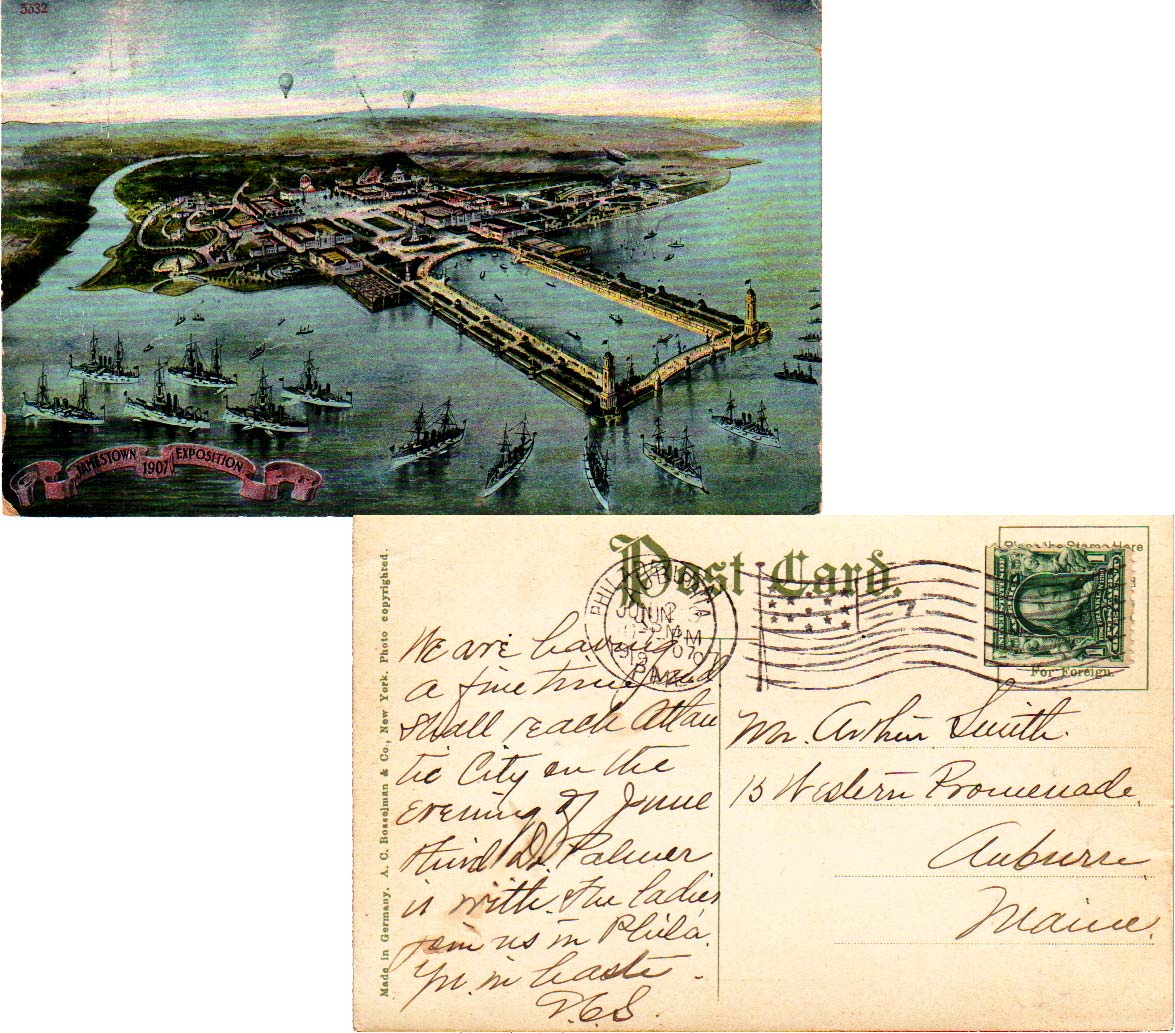 5532
JAMESTOWN EXPOSITION
1907
Post Card.
Place the Stamp Here
For Foreign.
PHILADELPHIA
JUN
PM
1907
PA.
7
Made in Germany. A. C. Bosselman & Co., New York. Photo copyrighted.
We are having
a fine time and
shall reach Atlan
tic City on the
evening of June
third Dr. Palmer
is with. The ladies
join us in Phila.
Yr. in haste.
Mr. Arthur Smith.
15 Western Promenade,
Auburn
Maine.